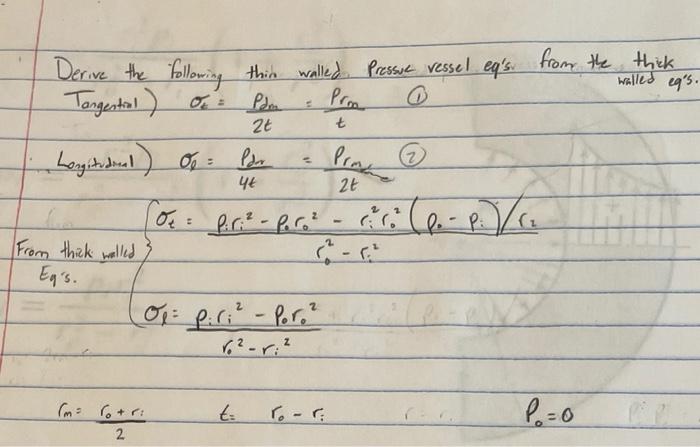 Derive the following thin walled pressure vessel eq's. from the thick walled eq's.
Tangential) σt = Pdm/2t = Prm/t ①
Longitudinal) σl = Pdm/4t = Prm/2t ②
From thick walled Eq's.
σt = piri² - poro² - ri²ro²(po - pi)/r2 / ro² - ri²
σl = piri² - Poro² / ro² - ri²
rm = ro + ri / 2 t = ro - ri Po = 0